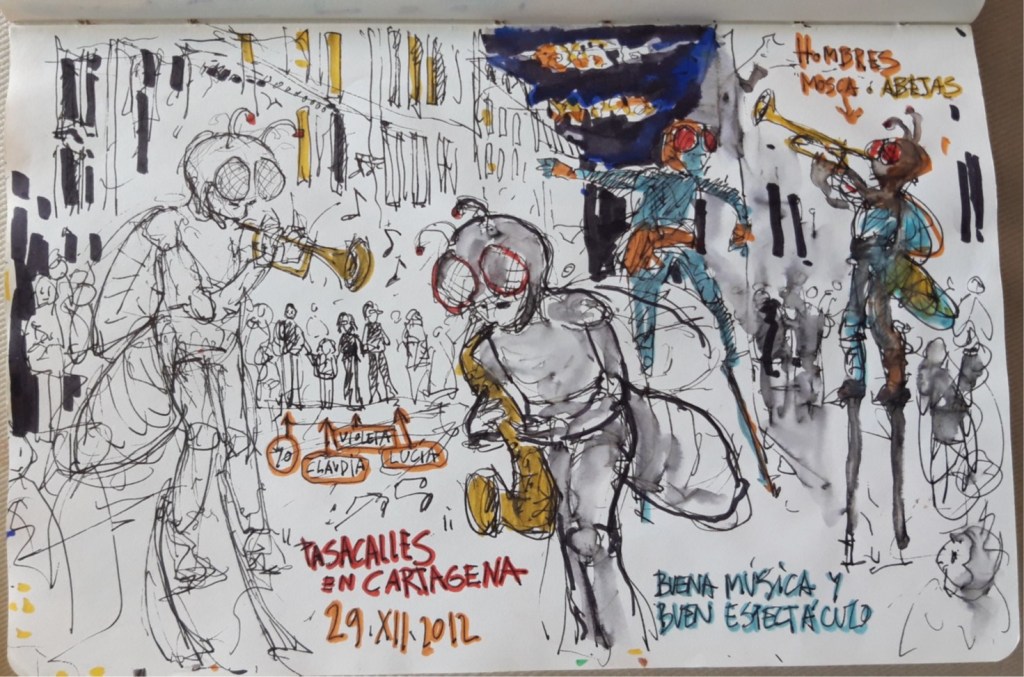 HOMBRES
MOSCA ó ABEJAS
YO
VIOLETA
CLAUDIA
LUCIA
PASACALLES
EN CARTAGENA
29.XII.2012
BUENA MÚSICA Y
BUEN ESPECTÁCULO